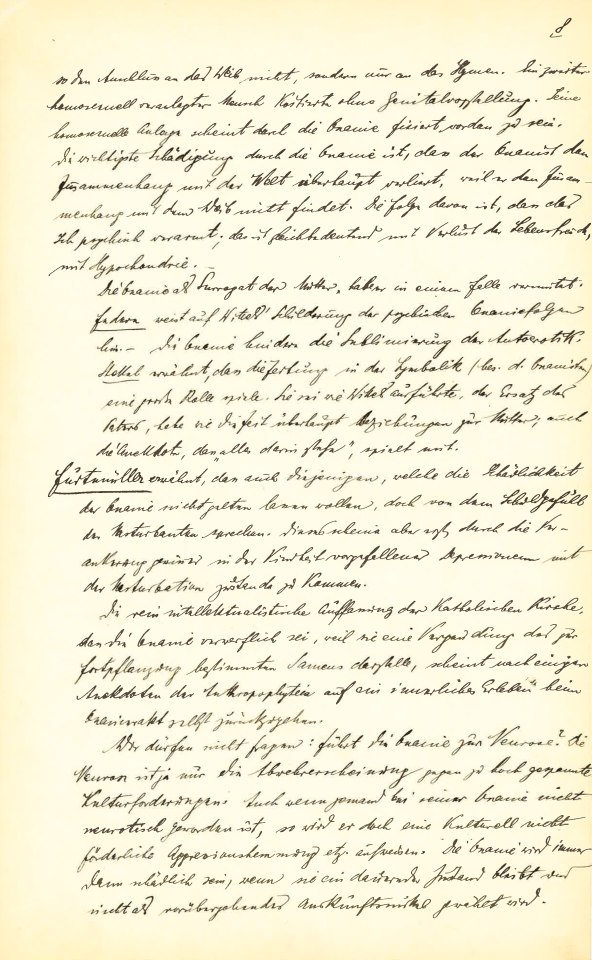 8
so den Anschluss an das Weib nicht, sondern nur an das Hymen. Ein zweiter
homosexuell veranlagter Mensch Kastrierte ohne Genitalvorstellung. Seine
homosexuelle Anlage scheint durch die Onanie fixiert worden zu sein.
Die wichtigste Schädigung durch die Onanie ist, dass der Onanist den
Zusammenhang mit der Welt überhaupt verliert, weil er den Zusam-
menhang mit dem Weib nicht findet. Die Folge davon ist, dass das
Ich psychisch verarmt; das ist gleichbedeutend mit Verlust der Lebensfreude,
mit Hypochondrie. –
Die Onanie als Surrogat der Mutter, habe er in einem Falle vermutet.
Federn weist auf Schilderung der psychischen Onaniefolgen
hin. – Die Onanie hindere die Sublimierung der Autoerotik.
Stekel erwähnt, dass die Fertung in der Symbolik (bes. d. Onanisten)
eine grosse Rolle spiele. Sie sei wie ausführte, der Ersatz des
Vaters, habe wie die überhaupt Beziehungen zur Mutter; auch
die Anekdote, dass "alles darin stehe", spielt mit.
Furtmüller erwähnt, dass auch diejenigen, welche die Schädlichkeit
der Onanie nicht gelten lassen wollen, doch von dem Schuldgefühl
der Masturbanten sprechen. Dieses scheine aber erst durch die Ver-
ankerung gewisser in der Kindheit vorgefallener Depressionen mit
der Masturbation zustande zu kommen.
Die rein intellektualistische Auffassung der Katholischen Kirche,
dass die Onanie verwerflich sei, weil sie eine Vergeudung des zur
Fortpflanzung bestimmten Samens darstelle, scheint nach einigen
Anekdoten der Anthropophyteia auf ein innerliches Erleben beim
Onanieakt selbst zurückzugehen.
Wir dürfen nicht sagen: führt die Onanie zur Neurose? Die
Neurose ist ja nur die Abwehrerscheinung gegen zu hoch gespannte
Kulturforderungen. Auch wenn jemand bei seiner Onanie nicht
neurotisch geworden ist, so wird er doch eine Kulturell nicht
förderliche Aggressionshemmung etz. aufweisen. Die Onanie wird immer
dann schädlich sein, wenn sie ein dauernder Zustand bleibt und
nicht als vorübergehendes Auskunftsmittel gewählt wird.